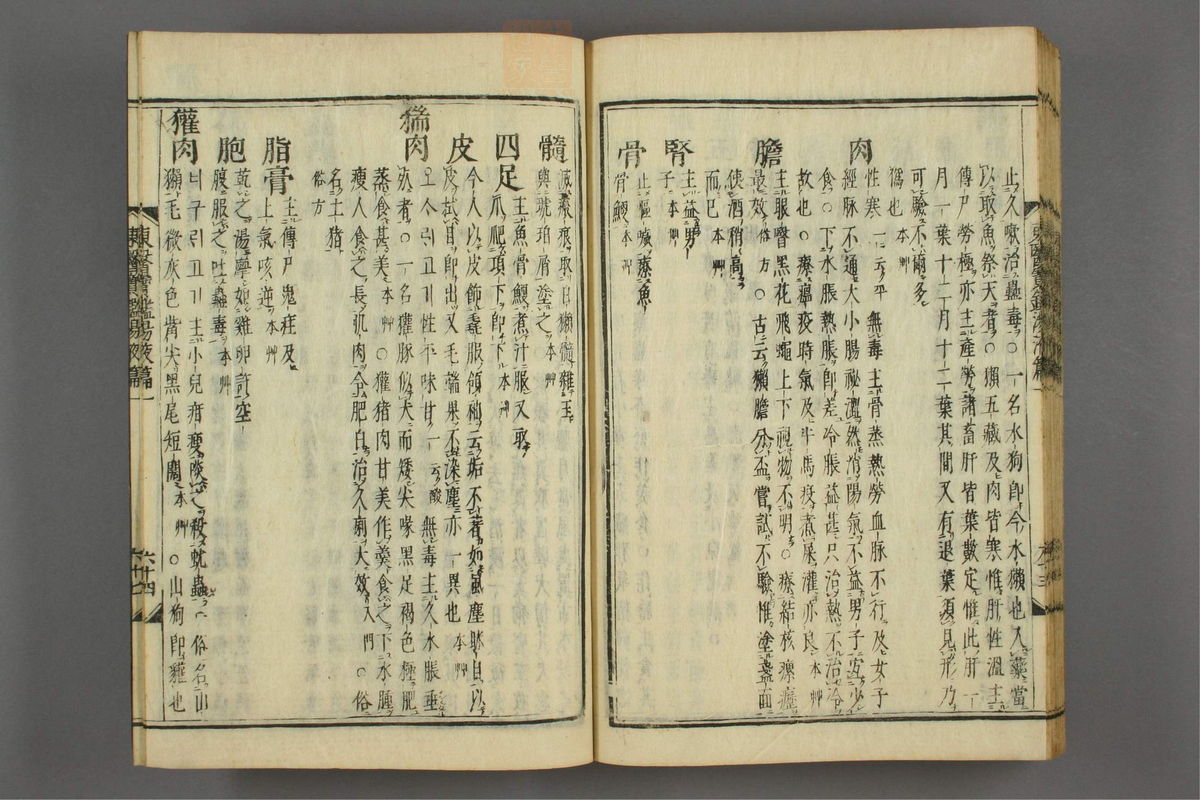 止久嗽治蠱毒○一名水狗卽今水獺也入藥當
以取魚祭天者○獺五藏及肉皆寒惟肝性溫主
傳尸勞極亦主産勞諸畜肝皆葉數定惟此肝一
月一葉十二月十二葉其間又有退葉須見形乃
可驗不爾多
僞也 本艸
肉 性寒一云平無毒主骨蒸熱勞血脉不行及女子
經脉不通大小腸秘澁然消陽氣不益男子宜少
食○下水脹熱脹卽差冷脹益甚只治熱不治冷
故也○療瘟疫時氣及牛馬疫煮屎灌亦良 本艸
膽 主眼瞖黑花飛蠅上下視物不明○療結核瘰癧
最效 俗方 ○古云獺膽分盃嘗試不驗惟塗盞面
使酒稍高
而已 本艸
腎 主益男
子 本艸
骨 止嘔噦療魚
骨鯁 本艸
東醫寶鑑湯液篇一
髓 滅瘢痕取白獺髓雜玉
與琥珀屑塗之 本艸
四足 主魚骨鯁煮汁服又取
爪爬項下卽下 本艸
皮 今人以皮飾毳服領袖云垢不著如風塵眯目以
皮拭目卽出又毛端果不染塵亦一異也 本艸
猯肉 오ᄉᆞ리고기 性平味甘一云酸無毒主久水脹垂
死者○一名獾㹠似犬而矮尖喙黑足褐色極肥
蒸食甚美 本艸 ○獾猪肉甘美作羹食之下水腫
瘦人食之長肌肉令肥白治久痢大效 入門 ○俗
名土猪
俗方
脂膏 主傳尸鬼疰及
上氣咳逆 本艸
胞 乾之湯摩如雞卵許空
腹服之吐蠱毒 本艸
獾肉 너구리고기 主小兒疳瘦啖之殺蚘蟲○俗名山
獺毛微灰色嘴尖黑尾短闊 本艸 ○山狗卽獾也
東醫寶鑑湯液篇一